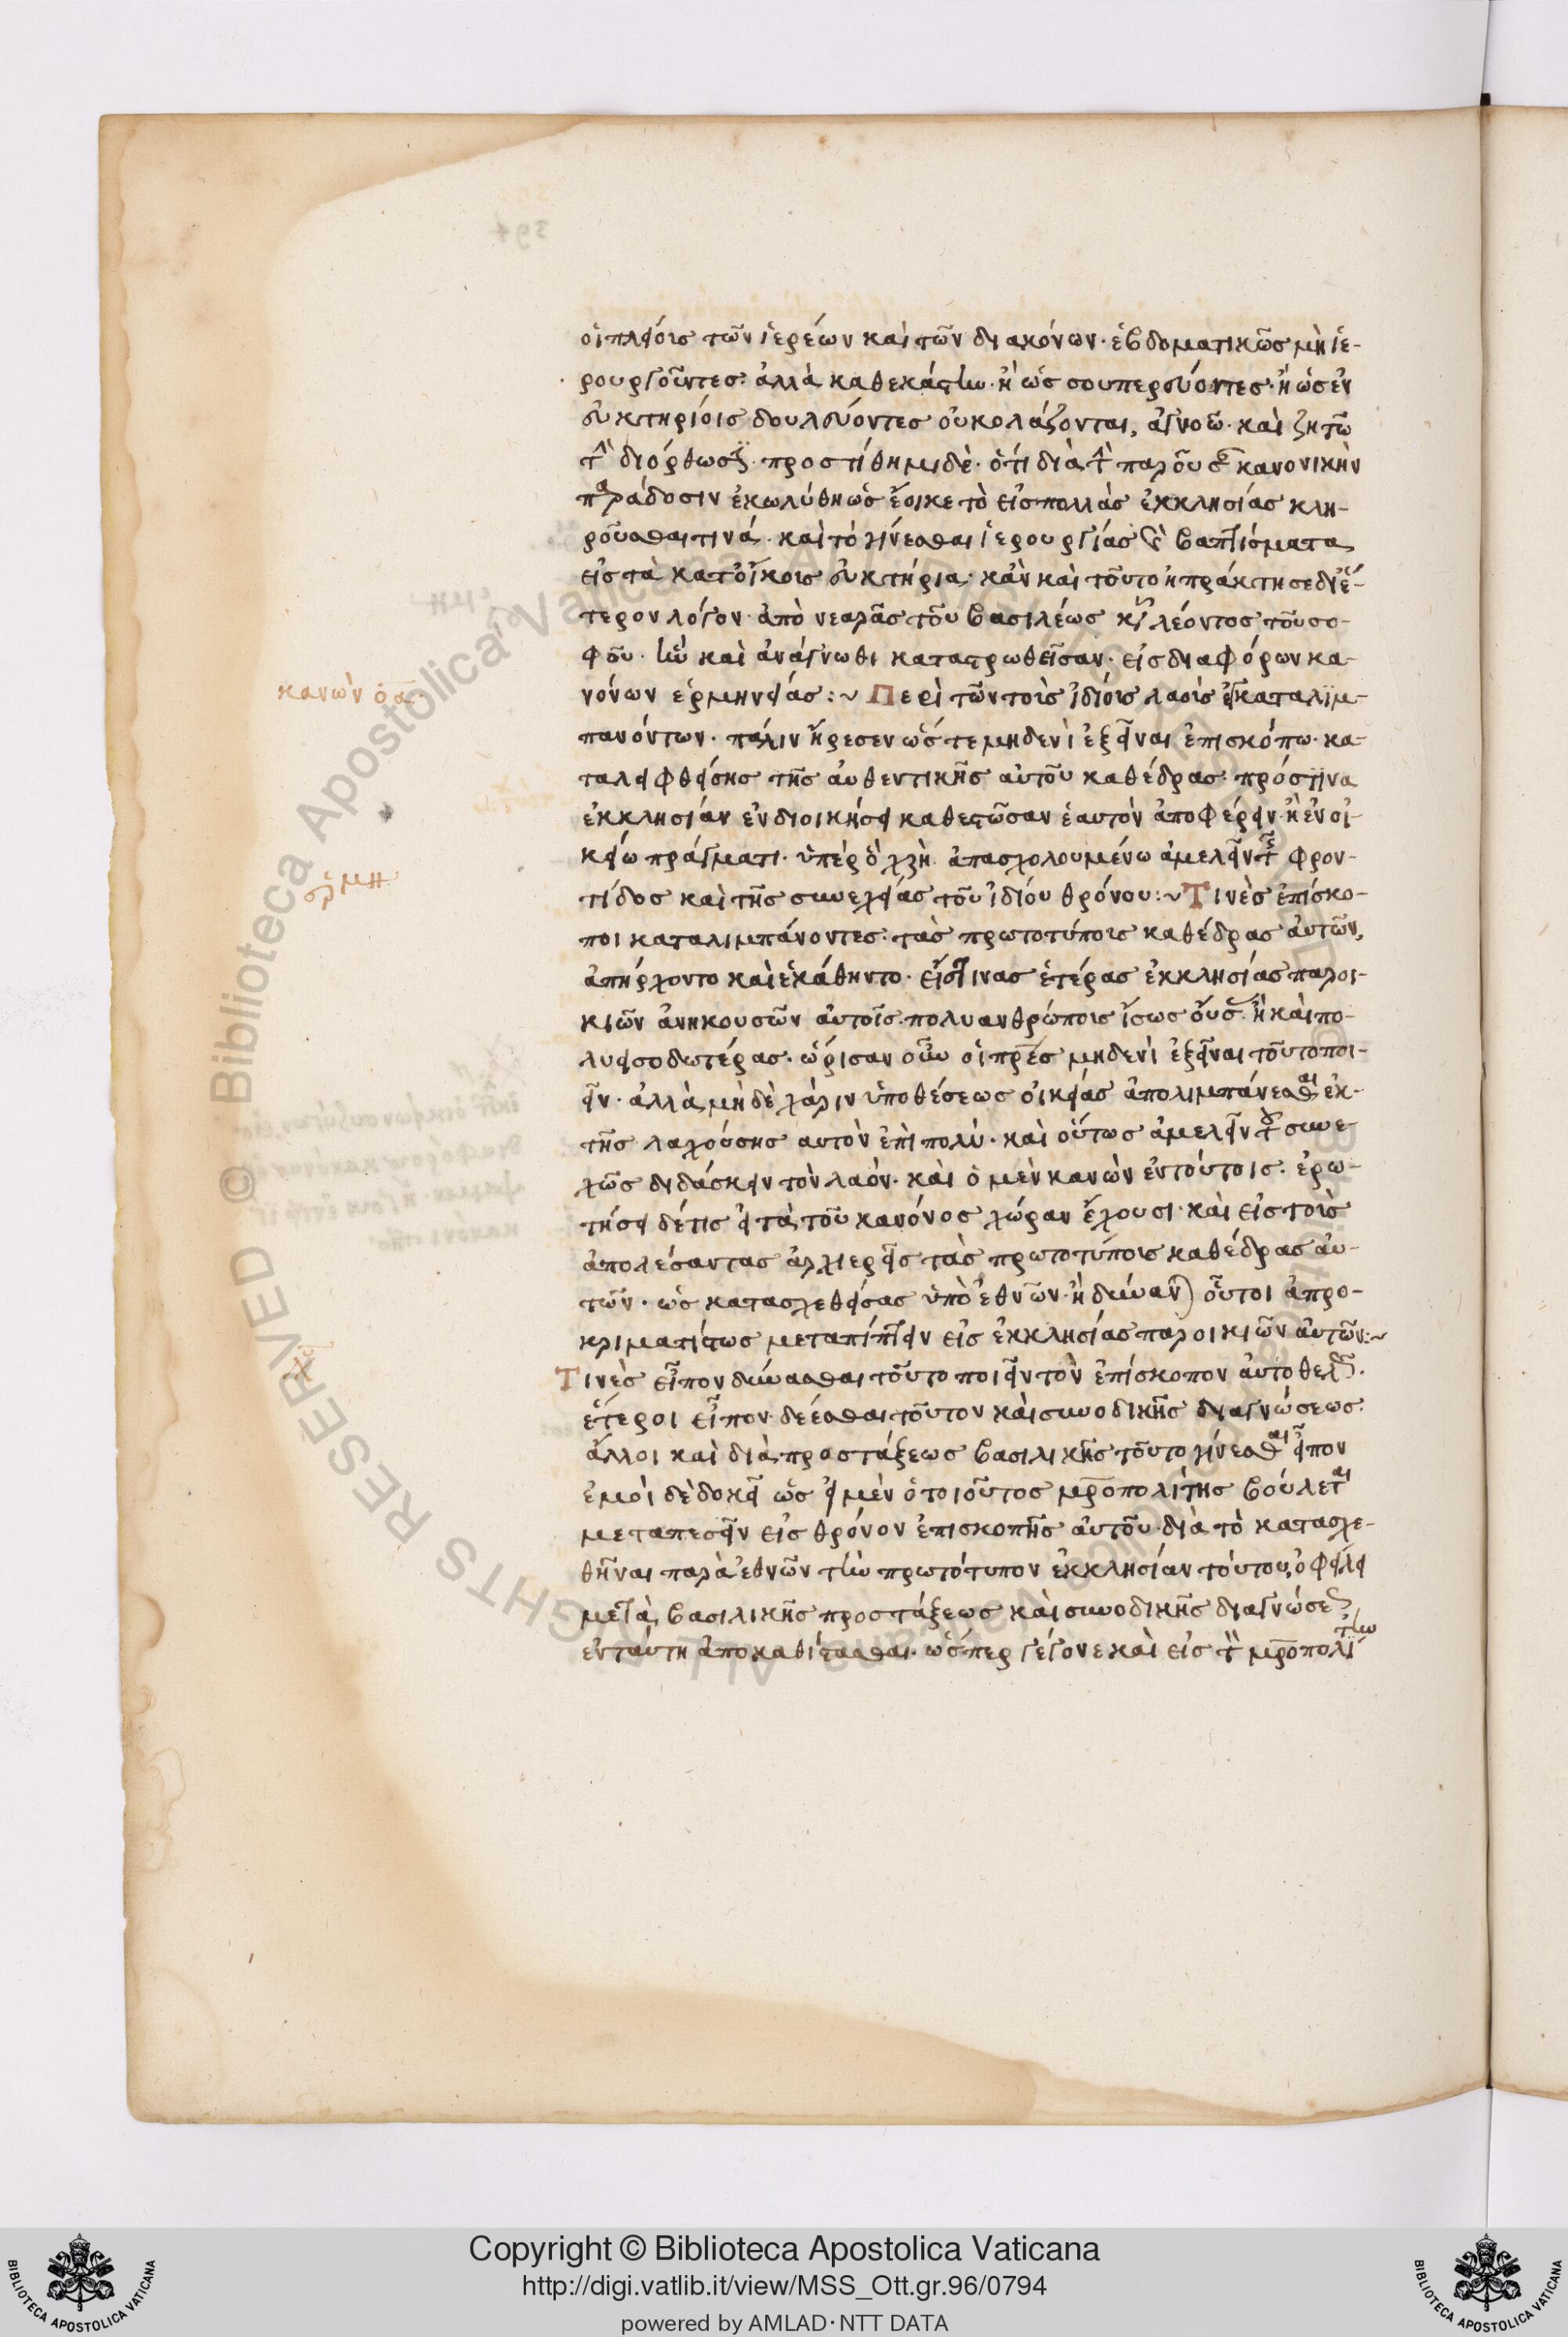 οἱ πλείους τῶν ἱερέων καὶ τῶν διακόνων· ἑβδοματικῶς μὴ ἱε-
ρουργοῦντες· ἀλλὰ καθεκάστην· ἢ ὡς σουπερεύοντες· ἢ ὡς ἐν
εὐκτηρίοις δουλεύοντες οὐ κολάζονται, ἀγνοῶ· καὶ ζητῶ
τὴν διόρθωσιν· προστίθημι δὲ· ὅτι διὰ τὴν παροῦσαν κανονικὴν
παράδοσιν ἐκωλύθη ὡς ἔοικε τὸ εἰς πολλὰς ἐκκλησίας κλη-
ροῦσθαι τινά· καὶ τὸ γίνεσθαι ἱερουργίας καὶ βαπτίσματα
εἰς τὰ κατοίκους εὐκτήρια· κἂν καὶ τοῦτο ἠπράκτησε δι' ἕ-
τερον λόγον· ἀπὸ νεαρᾶς τοῦ βασιλέως κυροῦ λέοντος τοῦ σο-
φοῦ· ἣν καὶ ἀνάγνωθι καταστρωθεῖσαν· εἰς διαφόρων κα-
κανὼν οα
νόνων ἑρμηνείας :~ Περὶ τῶν τοὺς ἰδίους λαοὺς ἐγκαταλιμ-
πανόντων· πάλιν ἤρεσεν ὥστε μηδενὶ ἐξεῖναι ἐπισκόπω· κα-
ταλειφθείσης τῆς αὐθεντικῆς αὐτοῦ καθέδρας· πρός τινα
ἐκκλησίαν ἐν διοικήσει καθεστῶσαν ἑαυτὸν ἀποφέρειν· ἢ ἐν οἰ-
κείω πράγματι· ὑπὲρ ὃ χρὴ ἀπασχολουμένω ἀμελεῖν τῆς φρον-
ἑρμη
τίδος καὶ τῆς συνεχείας τοῦ ἰδίου θρόνου :~ Τινὲς ἐπίσκο-
ποι καταλιμπάνοντες τὰς πρωτοτύπους καθέδρας αὐτῶν,
ἀπήρχοντο καὶ ἐκάθηντο· εἴς τινας ἑτέρας ἐκκλησίας παροι-
κιῶν ἀνηκουσῶν αὐτοῖς πολυανθρώπους ἴσως οὔσας ἢ καὶ πο-
λυεισοδωτέρας· ὥρισαν οὖν οἱ πρες μηδενὶ ἐξεῖναι τοῦτο ποι-
εῖν· ἀλλὰ μὴ δὲ χάριν ὑποθέσεως οἰκείας ἀπολιμπάνεσθαι ἐκ-
τῆς λαχούσης αυτὸν ἐπὶ πολύ· καὶ οὕτως ἀμελεῖν τοῦ συνε
χῶς διδάσκειν τὸν λαόν· καὶ ὁ μὲν κανὼν ἐν τούτοις· ἐρω-
τήσει δέ τις εἰ τὰ τοῦ κανόνος χώραν ἔχουσι· καὶ εἰς τοὺς
ἀπολέσαντας ἀρχιερεῖς τὰς πρωτοτύπους καθέδρας αὐ-
τῶν· ὡς κατασχεθείσας ὑπὸ ἐθνῶν· ἢ δύνανται οὗτοι ἀπρο-
κριματίστως μεταπίπτειν εἰς ἐκκλησίας παροικιῶν αὐτῶν :~
Τινὲς εἶπον δύνασθαι τοῦτο ποιεῖν τὸν ἐπίσκοπον αὐτοθελῶς·
ἕτεροι εἶπον· δέεσθαι τοῦτον καὶ συνοδικῆς διαγνώσεως·
ἄλλοι καὶ διὰ προστάξεως βασιλικῆς τοῦτο γίνεσθαι εἶπον
ἐμοὶ δὲ δοκεῖ ὡς εἰ μὲν ὁ τοιοῦτος μροπολίτης βούλεται
μεταπεσεῖν εἰς θρόνον ἐπισκοπῆς αὐτοῦ· διὰ τὸ κατασχε-
θῆναι παρὰ ἐθνῶν τὴν πρωτότυπον ἐκκλησίαν τούτου, ὀφείλει
μετὰ βασιλικῆς προστάξεως καὶ συνοδικῆς διαγνώσεως
ἐν ταύτη ἀποκαθίστασθαι· ὥσπερ γέγονε καὶ εἰς τὸν μροπολίτην